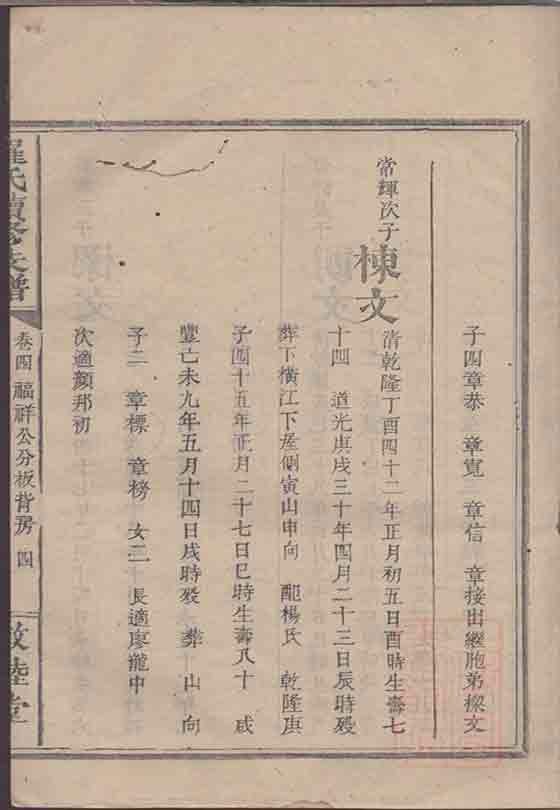 子四章恭 章寬 章信 章接出繼胞弟樑文
常輝次子
棟文
清乾隆丁酉四十二年正月初五日酉時生壽七
十四 道光庚戌三十年四月二十三日辰時殁
葬下橫江下屋側寅山申向 配楊氏 乾隆庚
子四十五年正月二十七日巳時生壽八十 咸
豐己未九年五月十四日戌時殁 葬 山 向
子二 章標 章榜 女二 長適廖 中
次適顏邦初
羅氏續修支譜
卷四 福祥公分板背房 四
敦睦堂